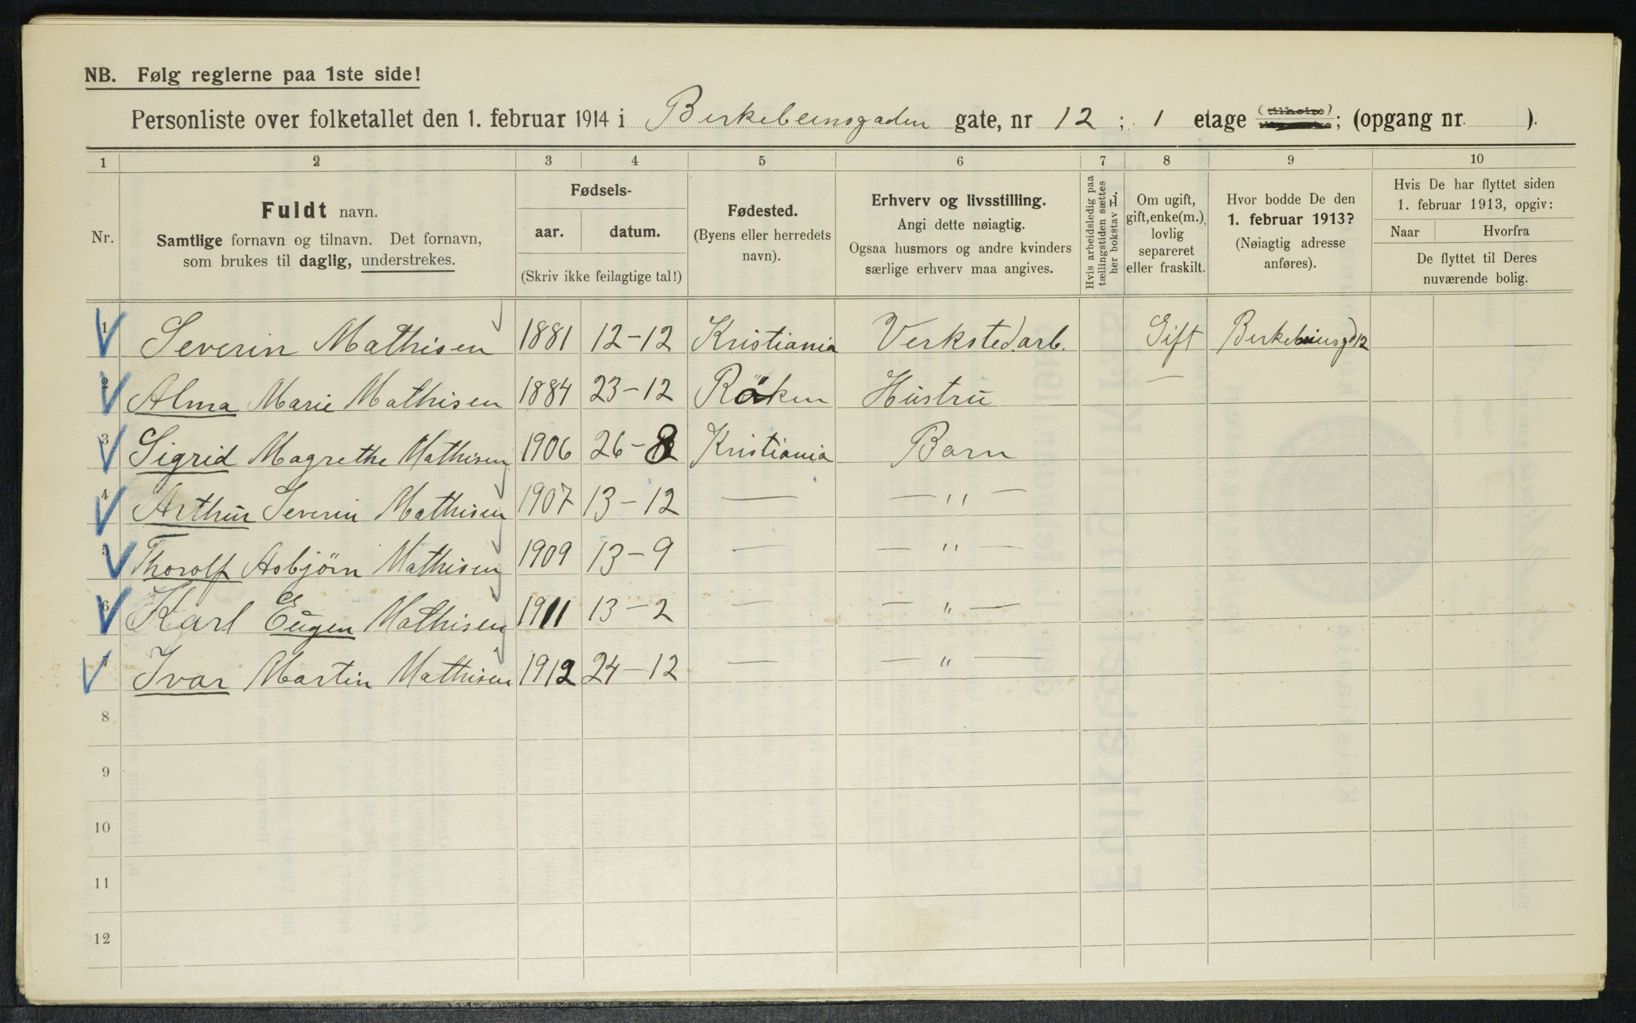 NB. Følg reglerne paa 1ste side!
Personliste over folketallet den 1. februar 1914 i Birkebeinsgaden gate, nr 12; 1 etage ; (opgang nr. ).
1 2 3 4 5 6 7 8 9 10
Nr.
Fuldt navn.
Samtlige fornavn og tilnavn. Det fornavn,
som brukes til daglig, understrekes.
Fødsels-
aar. datum.
(Skriv ikke feilagtige tal!)
Fødested.
(Byens eller herredets
navn).
Erhverv og livsstilling.
Angi dette nøiagtig.
Ogsaa husmors og andre kvinders
særlige erhverv maa angives.
Hvis arbeidsledig paa
tællingstiden sættes
her bokstav L.
Om ugift,
gift, enke(m.),
lovlig
separeret
eller fraskilt.
Hvor bodde De den
1. februar 1913?
(Nøiagtig adresse
anføres).
Hvis De har flyttet siden
1. februar 1913, opgiv:
Naar Hvorfra
De flyttet til Deres
nuværende bolig.
1 Severin Mathisen 1881 12-12 Kristiania Verkstedarb. Gift Birkebeinsgd 12
2 Alma Marie Mathisen 1884 23-12 Röken Hustru —
3 Sigrid Magrethe Mathisen 1906 26-8 Kristiania Barn
4 Arthur Severin Mathisen 1907 13-12 — — " —
5 Thorolf Asbjörn Mathisen 1909 13-9 — — " —
6 Karl Eugen Mathisen 1911 13-2 — — " —
7 Ivar Martin Mathisen 1912 24-12 — — " —
8
9
10
11
12